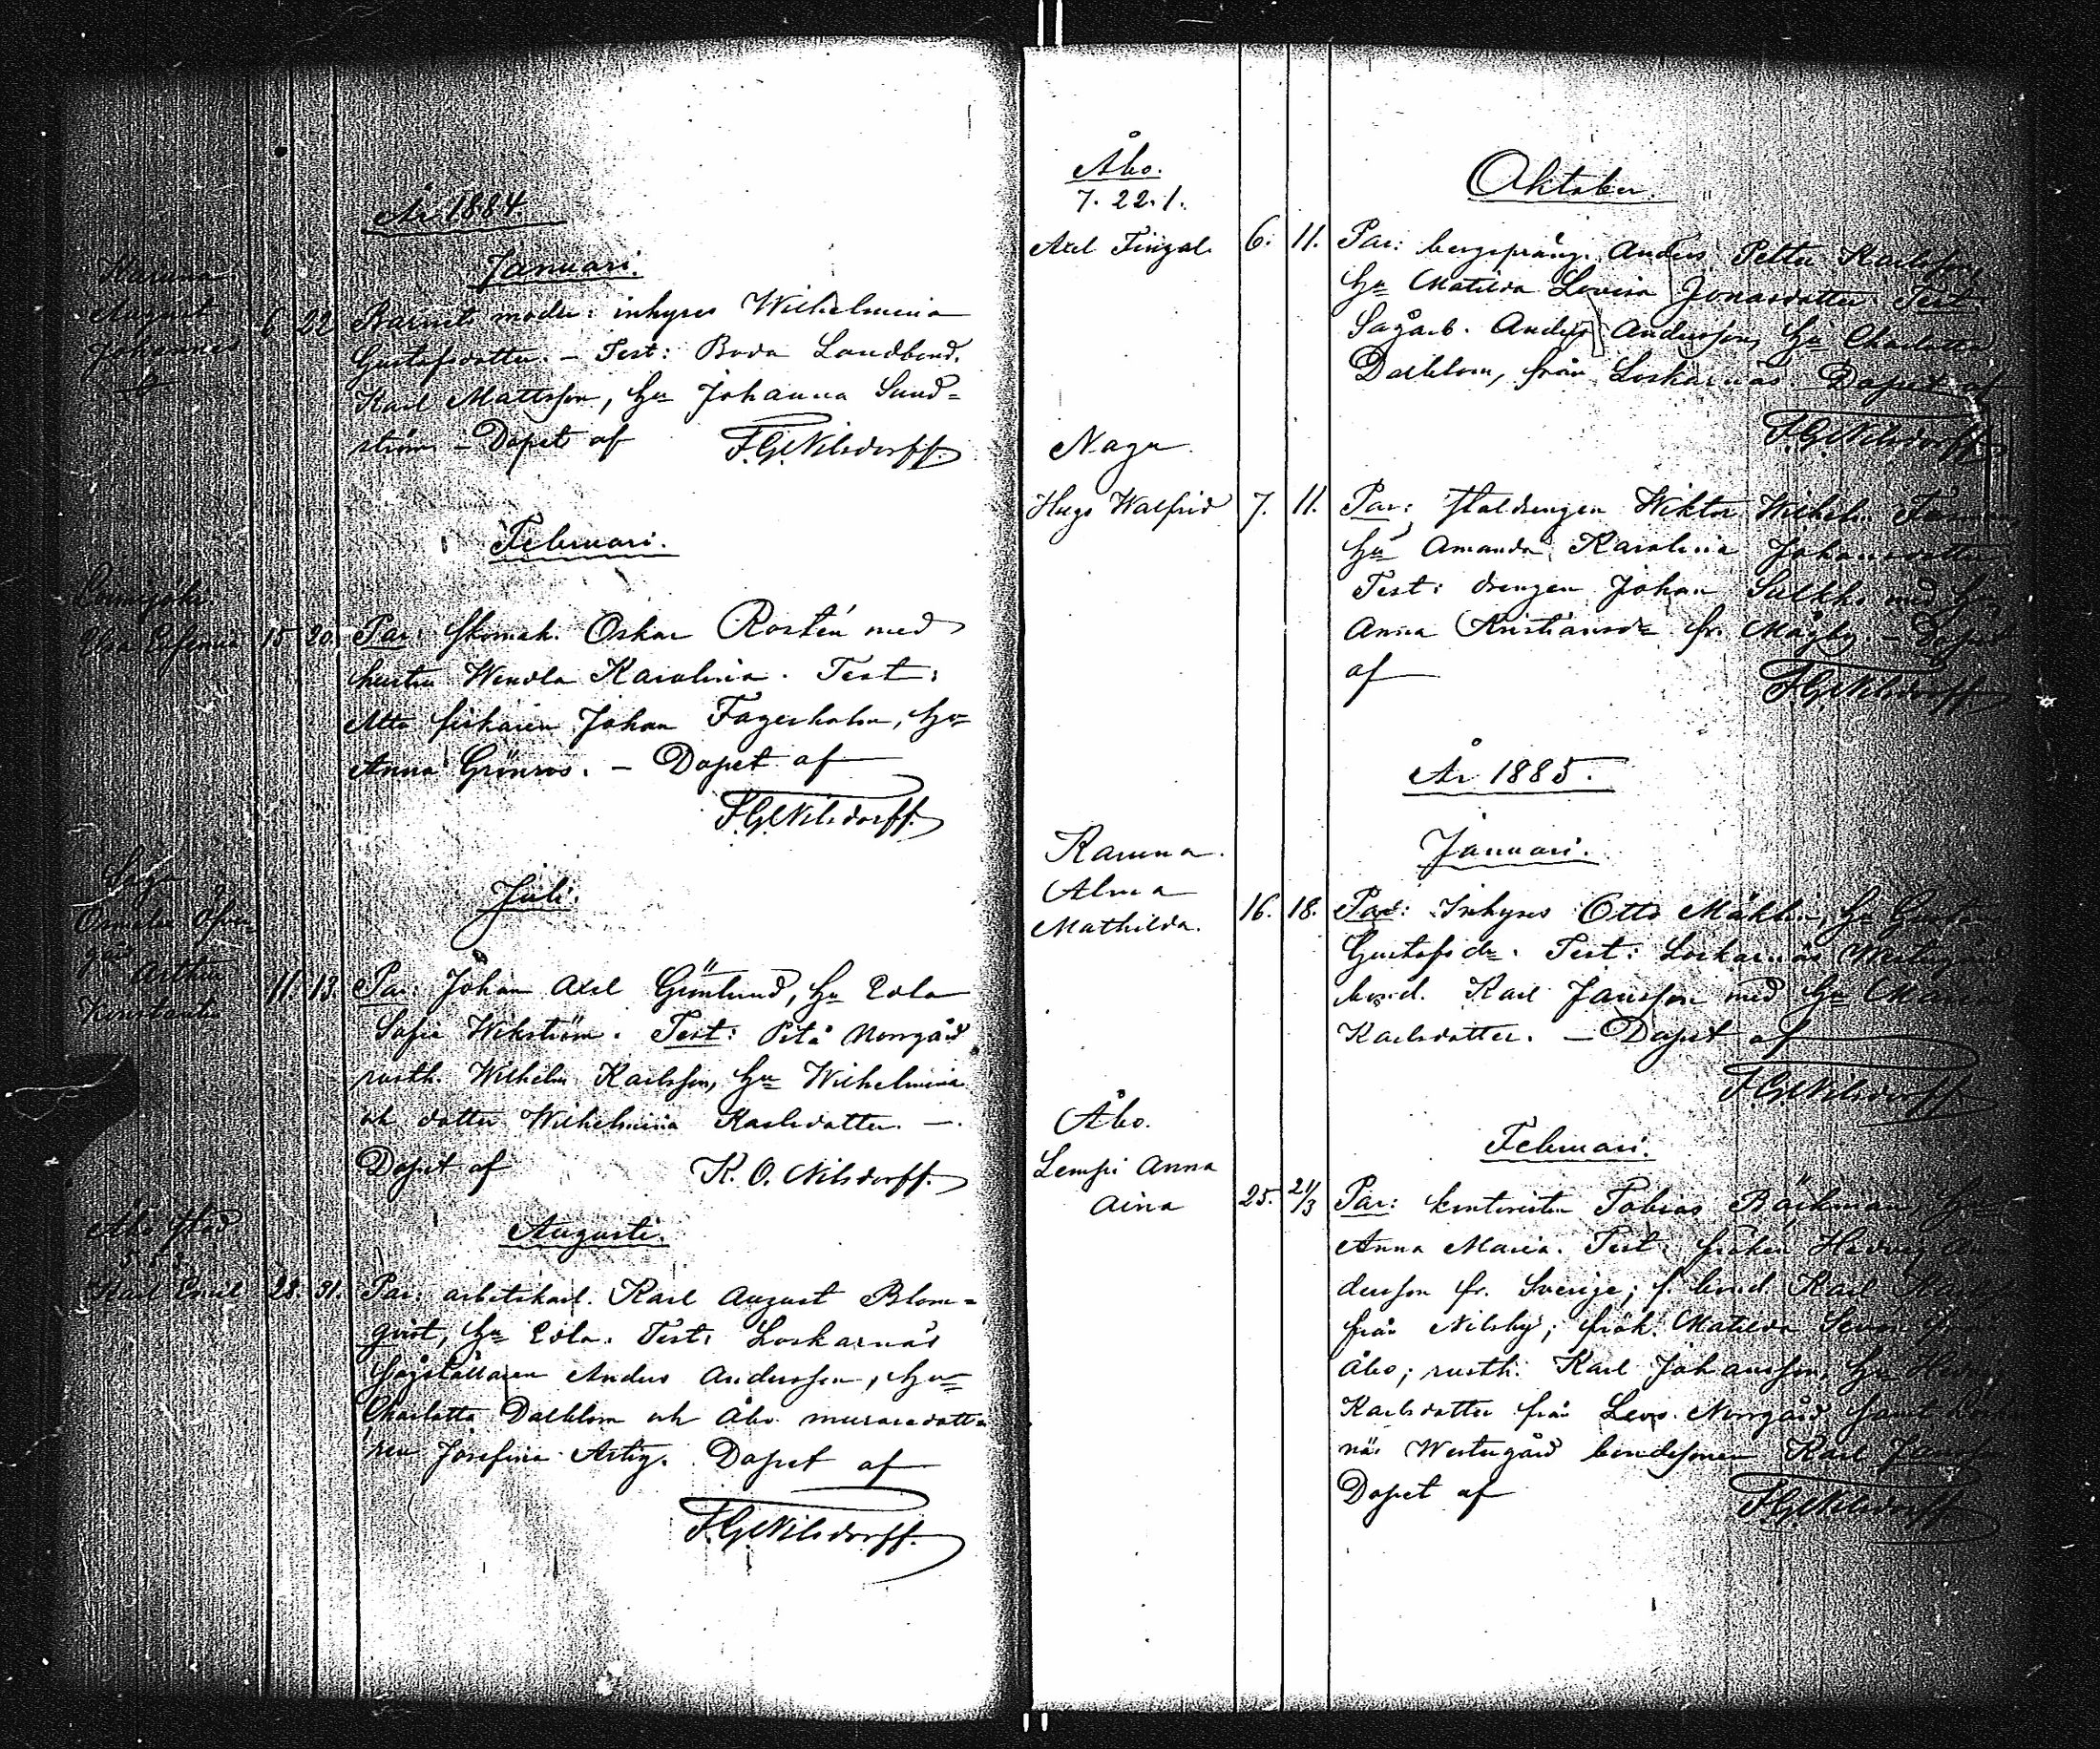 År 1884.
Januari.
August
Johannes
6 22 Barnets moder: inhyses Wilhelmina
Gustafsdotter. – Test: Boda Landbond.
Karl Mattsson, Hu Johanna Sund=
ström – Döpet af F.G. Nilsdorff.
Februari.
15 20. Par: skomak. Oskar Rostén med
hustru Wendla Karolina. Test:
Atto fiskaren Johan Fagerholm, Hu
Anna Grönros. – Döpet af
F.G. Nilsdorff.
Juli.
Arthur
Konstantin
11. 13. Par: Johan Axel Grönlund, Hu Edla
Sofia Wikström. Test: Pitä Norrgård
rusth. Wilhelm Karlsson, Hu Wilhelmina
och dotter Wilhelmina Karlsdotter. –
Döpet af K. O. Nilsdorff.
Augusti.
Åbo stad
Karl Emil 28. 31. Par: arbetskarl. Karl August Blom=
qvist, Hu Edla. Test: Loskarnäs
Anders Andersson, Hu
Charlotta Dahlblom och Åbo muraredott=
ren Josefina Döpet af
F.G. Nilsdorff.
Åbo.
7. 22. 1.
Oktober.
Axel Fingal. 6. 11. Par: bergspräng. Anders Petter Karlsson,
Hu Matilda Lovisa Jonasdotter Test:
Sågarb. Anders Andersson, Hu Charlotta
Dahlblom, från Loskarnäs Döpet af
F.G. Nilsdorff.
Nagu
Hugo Walfrid 7. 11. Par: staldrengen Wiktor Wilhelm
Hu Amanda Karolina Johansdotter
Test: drengen Johan med Hu
Anna Kristiansdr fr. Mågby – Döpet
af F.G. Nilsdorff
År 1885.
Januari.
Karuna.
Alma
Mathilda. 16. 18. Par: Inhyses Otto Hu
Gustafsdr. Test: Loskarnäs Westergård
bond. Karl Jansson med Hu
Karlsdotter. – Döpet af
F.G. Nilsdorff
Februari.
Åbo.
Lempi Anna
Aina 25. 21/3 Par: kontoristen Tobias Bäckman, Hu
Anna Maria. Test: fröken Hedvig An
dersson fr. Sverige; f. bond. Karl
från Nilsby; frök. Matilda från
Åbo; rusth. Karl Johansson, Hu
Karlsdotter från Norrgård samt
näs Westergård bondesonen Karl
Döpet af F.G. Nilsdorff